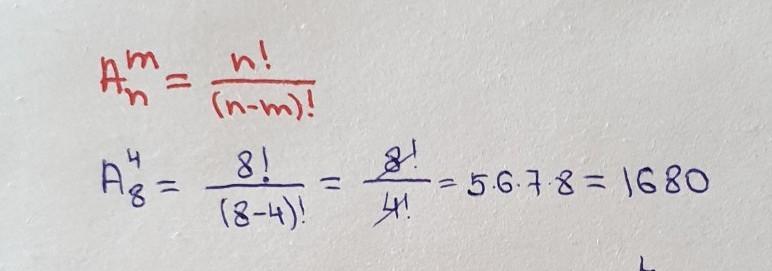 Aₙᵐ = n! / (n-m)!
A₈⁴ = 8! / (8-4)! = 8! / 4! = 5·6·7·8 = 1680